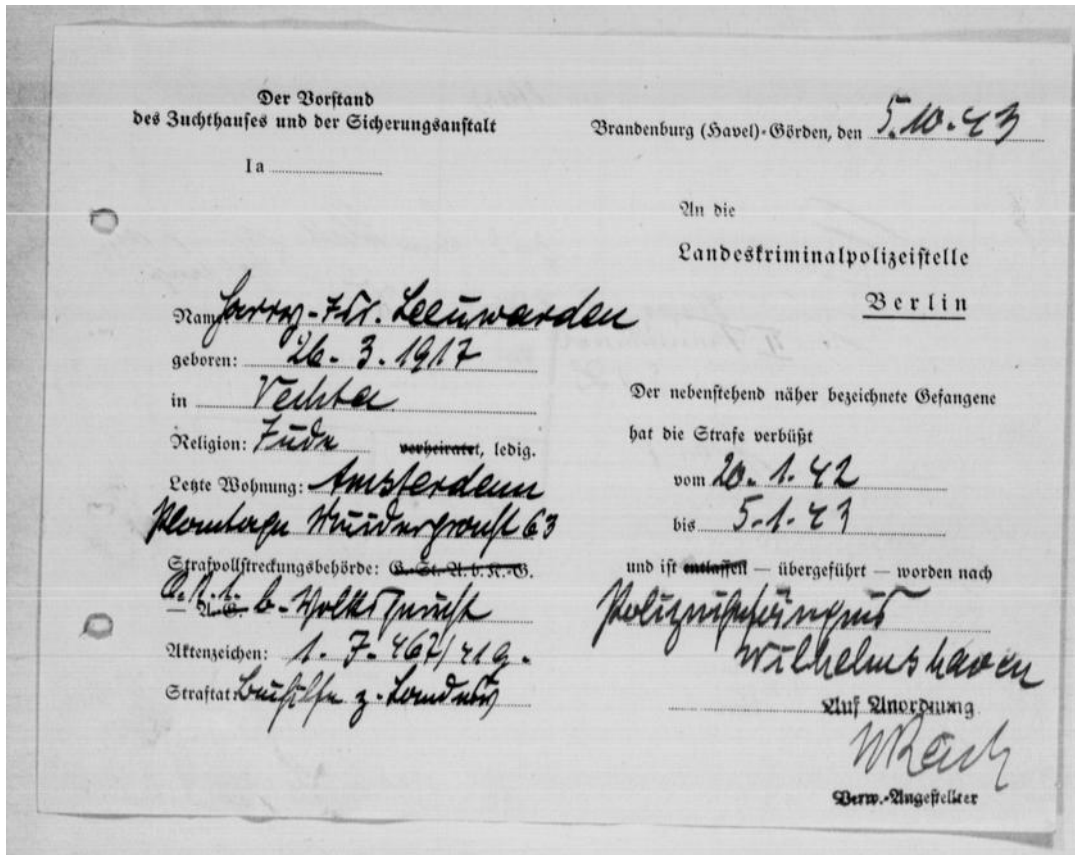 Der Vorstand
des Zuchthauses und der Sicherungsanstalt
Ia
Brandenburg (Havel)-Görden, den 5.10.43
An die
Landeskriminalpolizeistelle
Berlin
Name: Harry-Isr. Leeuwarden
geboren: 26. 3. 1917
in Vechta
Religion: Jude verheiratet, ledig.
Letzte Wohnung: Amsterdam
Plantage Muidergracht 63
Strafvollstreckungsbehörde: G. St. A. b. K.-G.
b. Volksgericht
Aktenzeichen: 1. J. 467/41g.
Straftat: Beihilfe z.
Der nebenstehend näher bezeichnete Gefangene
hat die Strafe verbüßt
vom 20. 1. 42
bis 5.1.43
und ist entlassen — übergeführt — worden nach
Polizeigefängnis
Wilhelmshaven
Auf Anordnung
Verw.-Angestellter